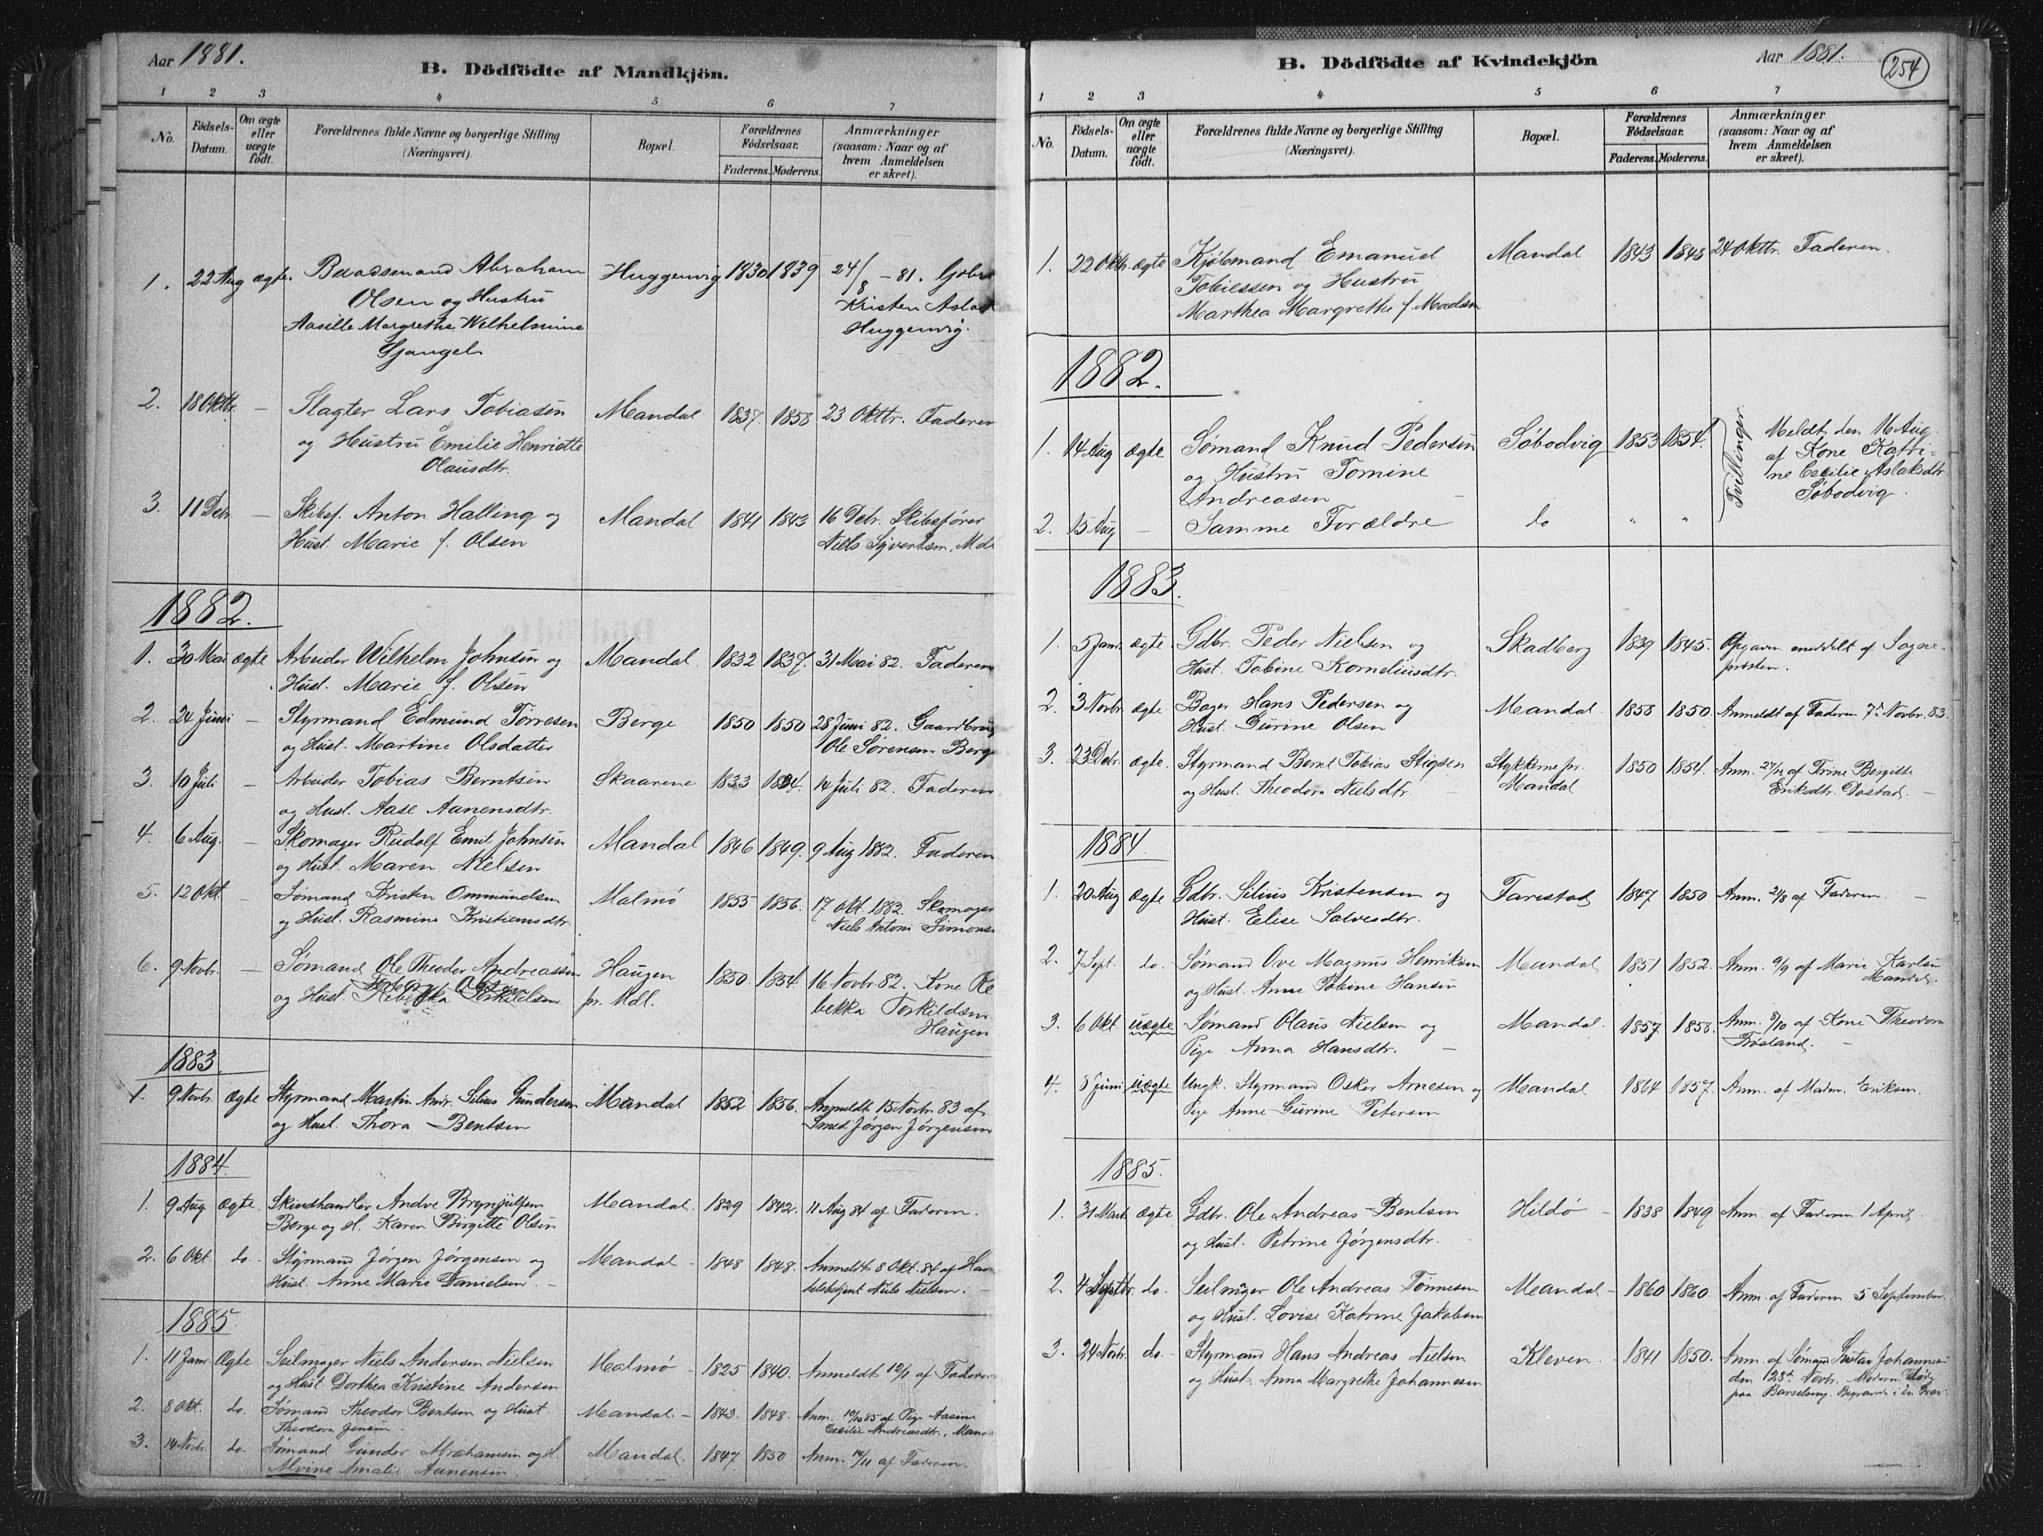 Aar 1881.
B. Dödfödte af Mandkjön.
1 2 3 4 5 6 7
No. Födsels-Datum. Om ægte eller uægte födt. Forældrenes fulde Navne og borgerlige Stilling (Næringsvei). Bopæl. Forældrenes Födselsaar. Faderens. Moderens. Anmærkninger (saasom: Naar og af hvem Anmeldelsen er skeet).
1. 22 Aug ægte. Baadsmand Abraham Huggenvig 1830 1839 24/8 - 81.
Olsen og Hustru Kristen
Aasille Margrethe Wilhelmine Huggenvig.
Gjangel
2. 18 Oktbr. - Slagter Lars Tobiasen Mandal 1837. 1858 23 Oktbr. Faderen
og Hustru Emilie Henriette
Olausdtr.
3. 11 Debr. - Skibsf. Anton Halling og Mandal 1841 1843 16 Debr. Skibsfører
Hust. Marie f. Olsen Niels Sivertsen,
1882.
1. 30 Mai ægte Arbeider Wilhelm Johnsen og Mandal 1832 1837. 31 Mai 82. Faderen
Hust. Marie f. Olsen
2. 24 Juni - Styrmand Edmund Tørresen Berge 1850 1850 28 Juni 82. Gaardbrug
og Hust. Martine Olsdatter Ole Sørensen Berge
3. 10 Juli - Arbeider Tobias Berntsen Skaarene 1833 1834. 14 Juli 82. Faderen
og Hust. Aase Aanensdtr.
4. 6 Aug. - Skomager Rudolf Emil Johnsen Mandal 1846 1849. 9 Aug 1882. Faderen
og Hust. Maren Nielsen
5. 12 Okt. - Sømand Kristen Ommundsen Malmø 1855 1856. 17 Okt 1882. Skomager
og Hust. Rasmine Kristiansdtr. Niels Antoni Simons
6. 9 Novbr. - Sømand Ole Theodor Andreassen Haugen 1850 1854. 16 Novbr 82. Kone Re
og Hust. pr. Mdl. bekka Torkildsen
Haugen
1883.
1. 9 Novbr. ægte Styrmand Martin Andr. Silius Gundersen Mandal 1852 1856. Anmeldt 15 Novbr. 83 af
og Hust. Thora Bentsen Smed Jørgen Jørgensen
1884.
1. 9 Aug ægte. Skindhandler Andre Brynjulfsen Mandal. 1829 1842. 11 Aug 84 af Faderen.
Berge og H. Karen Birgitte Olsen
2. 6 Okt. do. Styrmand Jørgen Jørgensen og Mandal - 1848 1848. Anmeldt 8 Okt. 84 af Han
Hust. Anne Marie Danielsen. - delsbetjent Niels Nielsen. -
1885
1. 11 Janr ægte Seilmager Niels Andersen Nielsen Malmø - 1825 1840. Anmeldt 12/1 af Faderen
og Hust. Dorthea Kristine Andersen
2. 8 Okt. do. Sømand Theodor Bentsen og Hust. Mandal - 1843. 1848. Anm. 10/10 85 af Pige Aasine
Theodora Jensen. Cecilie Andreasdtr.,
3. 14 Novbr. do. Sømand Gunder Abrahamsen og H. Mandal. 1847. 1850 Anm. af Faderen.
Alvine Amalie Aanensen.
B. Dödfödte af Kvindekjön
Aar 1881.
254
1 2 3 4 5 6 7
No. Födsels-Datum. Om ægte eller uægte födt. Forældrenes fulde Navne og borgerlige Stilling (Næringsvei). Bopæl. Forældrenes Födselsaar. Faderens. Moderens. Anmærkninger (saasom: Naar og af hvem Anmeldelsen er skeet).
1. 22 Oktbr. ægte Kjøbmand Emanuel Mandal 1843 1848 24 Oktbr. Faderen.
Tobiessen og Hustru
Marthea Margrethe f. Madsen
1882.
1. 14 Aug ægte Sømand Knud Pedersen Søbodvig 1853 1854. Tvillinger. Meldt den 16 Aug.
og Hustru Tomine af Kone Katri-
Andreasen ne Cecilie Aslaksdtr
2. 15 Aug - Samme Forældre do " " Søbodvig.
1883.
1. 5 Janr. ægte. Gdbr. Peder Nielsen og Skadberg 1839 1845. Opgaven meddelt af Sogne-
Hust. Tobine Korneliusdtr. præsten.
2. 3 Novbr. ægte. Bager Hans Pedersen og Mandal. 1858 1850. Anmeldt af Faderen 7de Novbr. 83.
Hust. Gurine Olsen
3. 23 Debr. ægte. Styrmand Bernt Tobias Stigsen Stykkerne pr. 1850 1854. Anm. 27/12 af Trine Birgitte
og Hust. Theodora Nielsdtr. Mandal Eriksdtr. -
1884.
1. 20 Aug ægte Gdbr. Silius Kristensen og Tarestad 1847 1850 Anm. 24/8 af Faderen. -
Hust. Elise Salvesdtr.
2. 7 Sept. do. Sømand Ove Magnus Henriksen Mandal 1851 1852. Anm. 9/9 af Marie Karlsen
og Hust. Anne Tobine Hansen Mandal.
3. 6 Okt uægte Sømand Olaus Nielsen og Mandal. 1857 1858. Anm. 8/10 af Kone Theodora
Pige Anna Hansdtr. - Frøsland. -
4. 8 Juni uægte Ungk. Styrmand Oskar Arnesen og Mandal 1864 1857. Anm. af Madm. Eriksen.
Pige Anne Gurine Petersen
1885.
1. 31 Marts ægte Gdbr. Ole Andreas Bentsen Hildø - 1838 1849 Anm. af Faderen 1 April.
og Hust. Petrine Jørgensdtr.
2. 4 Septbr. do. Seilmager Ole Andreas Tønnesen Mandal - 1860 1860. Anm. af Faderen 5 September
og Hust. Lovise Katrine Jakobsen
3. 24 Novbr. do. Styrmand Hans Andreas Nielsen Kleven. 1841 1850. Anm. af Sømand Gustav Johannesen
og Hust. Anna Margrethe Johannesen den 128de Novbr. Moderen døde
paa Barselseng. Begravede i én Grav